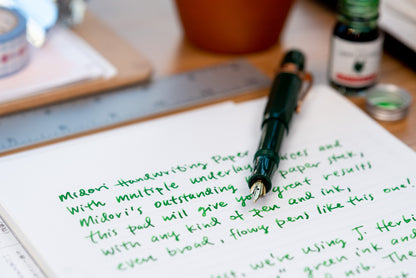 Midori Handwriting Paper
with multiple underlay and
Midori's outstanding paper stock,
this pad will give you great results
with any kind of pen and ink,
even broad, flowy pens like this one!
we're using J. Herbi
green ink and
The